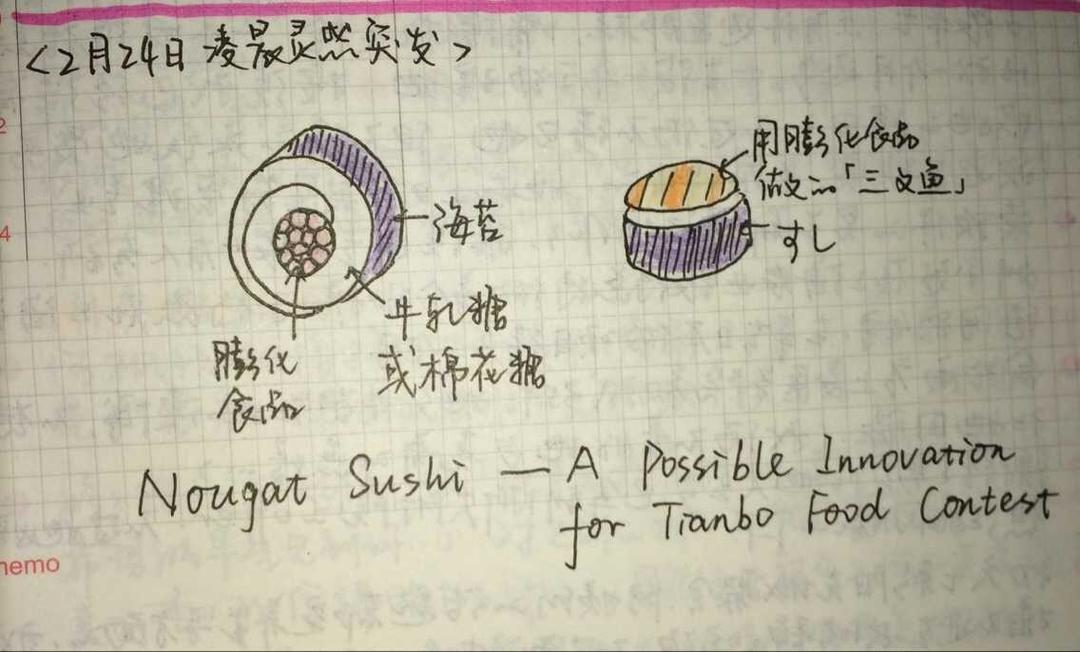 <2月24日 凌晨灵然突发>
用膨化食品
做的「三文鱼」
海苔
すし
牛轧糖
或棉花糖
膨化
食品
Nougat Sushi — A Possible Innovation
for Tianbo Food Contest
2
4
memo